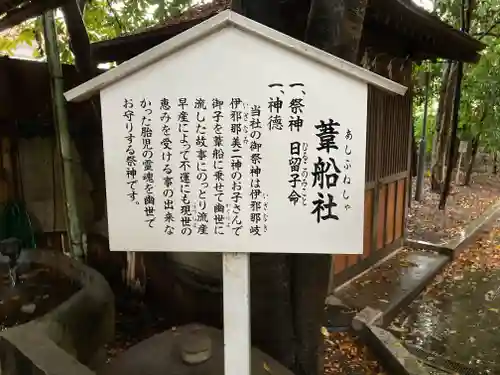 葦船社
あしふねしゃ
一、祭神 日留子命
ひるこのみこと
一、神徳
当社の御祭神は伊邪那岐
いざなぎ
伊邪那美二神のお子さんで
いざなみ
御子を葦船に乗せて幽世に
かくりよ
流した故事にのっとり流産
早産によって不運にも現世の
恵みを受ける事の出来な
かった胎児の霊魂を幽世で
お守りする祭神です。